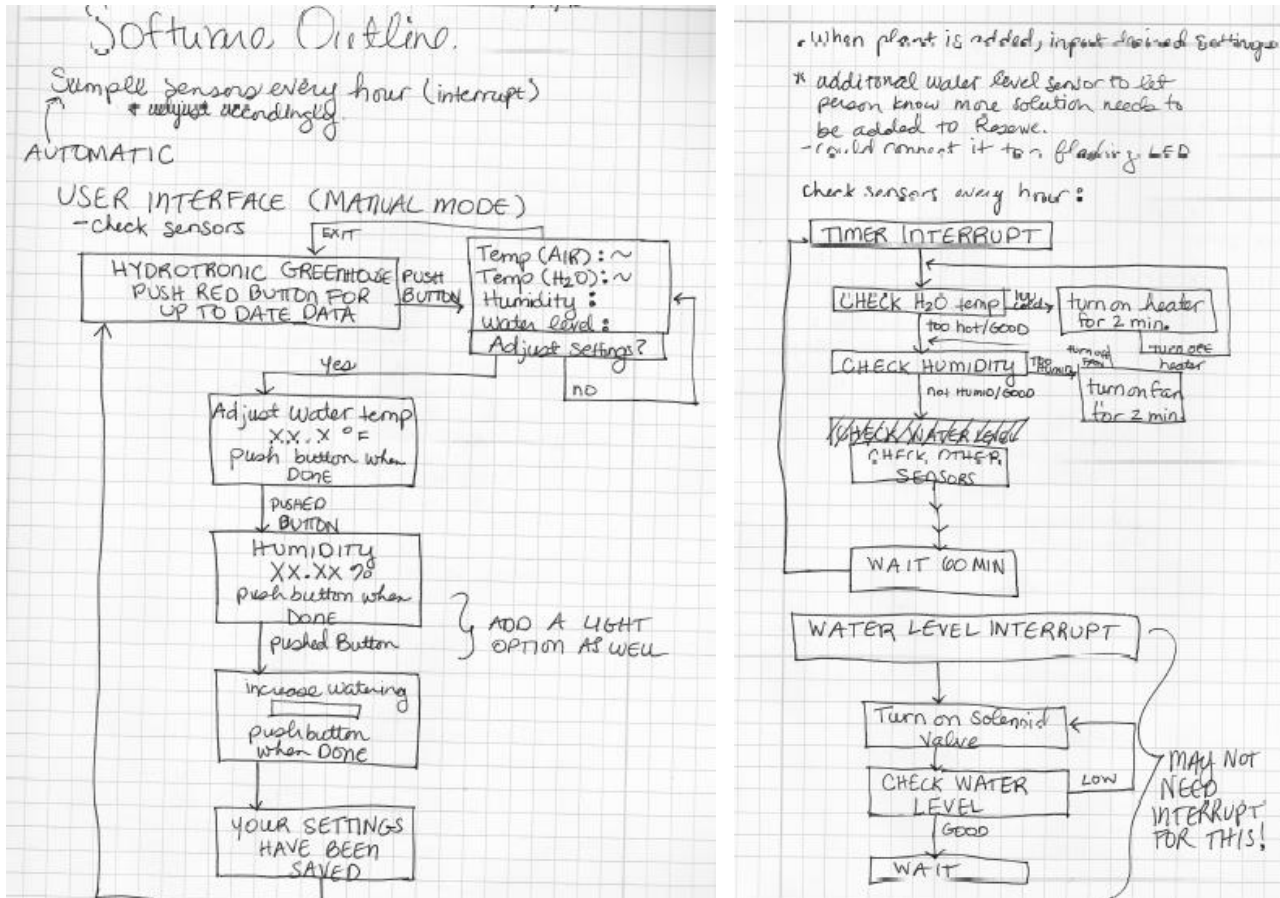 Software Outline.
Sample sensors every hour (interrupt)
+ adjust accordingly.
AUTOMATIC
USER INTERFACE (MANUAL MODE)
-check sensors
EXIT
HYDROTRONIC GREENHOUSE
PUSH RED BUTTON FOR
UP TO DATE DATA
PUSH
BUTTON
Temp (AIR) : ~
Temp (H₂O) : ~
Humidity :
Water level :
Adjust settings?
Yes
no
Adjust Water temp
XX.X °F
push button when
DONE
PUSHED
BUTTON
HUMIDITY
XX.XX %
push button when
DONE
pushed Button
ADD A LIGHT
OPTION AS WELL
increase watering
push button
when DONE
YOUR SETTINGS
HAVE BEEN
SAVED
. When plant is added, input desired settings
* additional water level sensor to let
person know more solution needs to
be added to Reserve.
- could connect it to a flashing LED
Check sensors every hour :
TIMER INTERRUPT
CHECK H₂O temp
too cold
turn on heater
for 2 min.
turn off
heater
too hot/GOOD
CHECK HUMIDITY
TOO
HUMID
turn off
FAN
turn on fan
for 2 min
not HUMID/GOOD
CHECK WATER LEVEL
CHECK OTHER
SENSORS
WAIT 60 MIN
WATER LEVEL INTERRUPT
Turn on Solenoid
Valve
CHECK WATER
LEVEL
LOW
GOOD
WAIT
MAY NOT
NEED
INTERRUPT
FOR THIS!